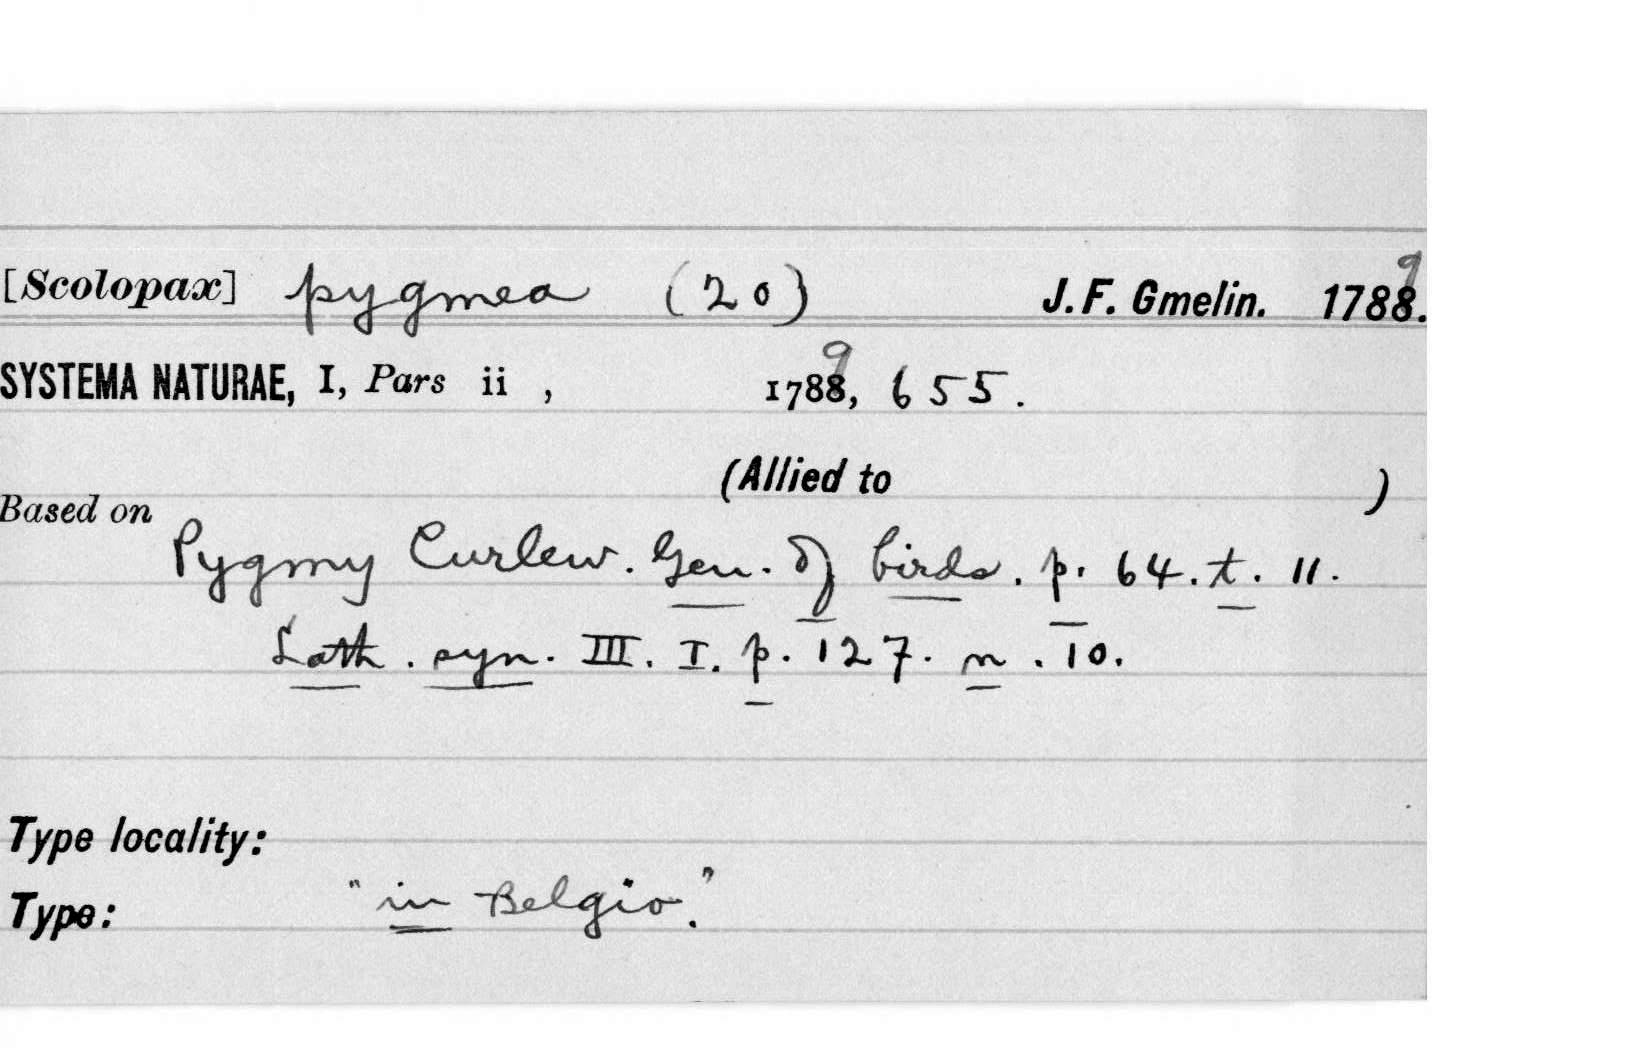 [Scolopax] pygmea (20) J. F. Gmelin. 1788. 9
SYSTEMA NATURAE, I, Pars ii , 1788, 9 655.
(Allied to )
Based on
Pygmy Curlew. Gen. of birds. p. 64. t. 11.
Lath. syn. III. I. p. 127. n. 10.
Type locality:
Type: "in Belgio."